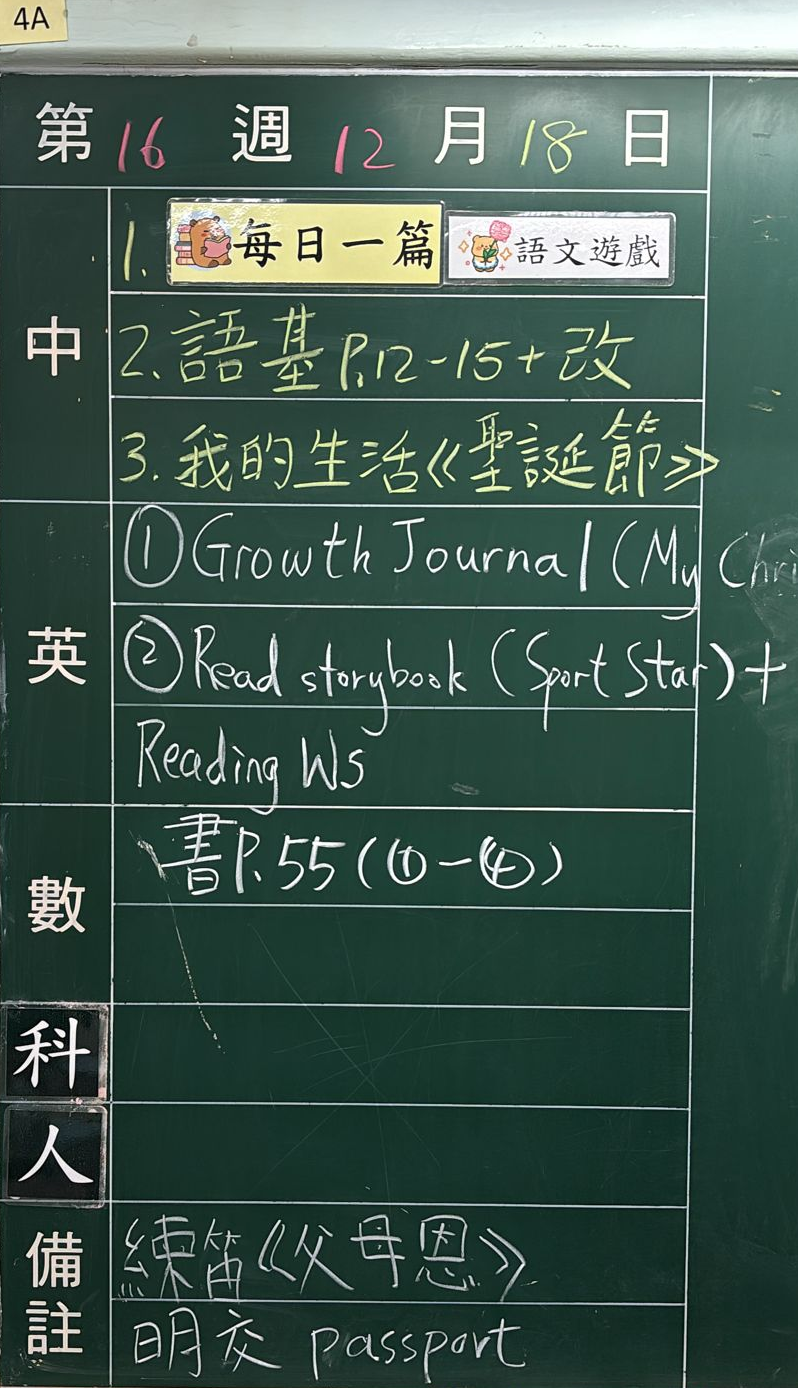 4A
第 16 週 12 月 18 日
中
1. 每日一篇 語文遊戲
2. 語基 P.12-15 + 改
3. 我的生活《聖誕節》
英
① Growth Journal (My Chri
② Read storybook (Sport Star) +
Reading WS
數
書P.55 (①-④)
科
人
備註
練笛《父母恩》
明交 passport